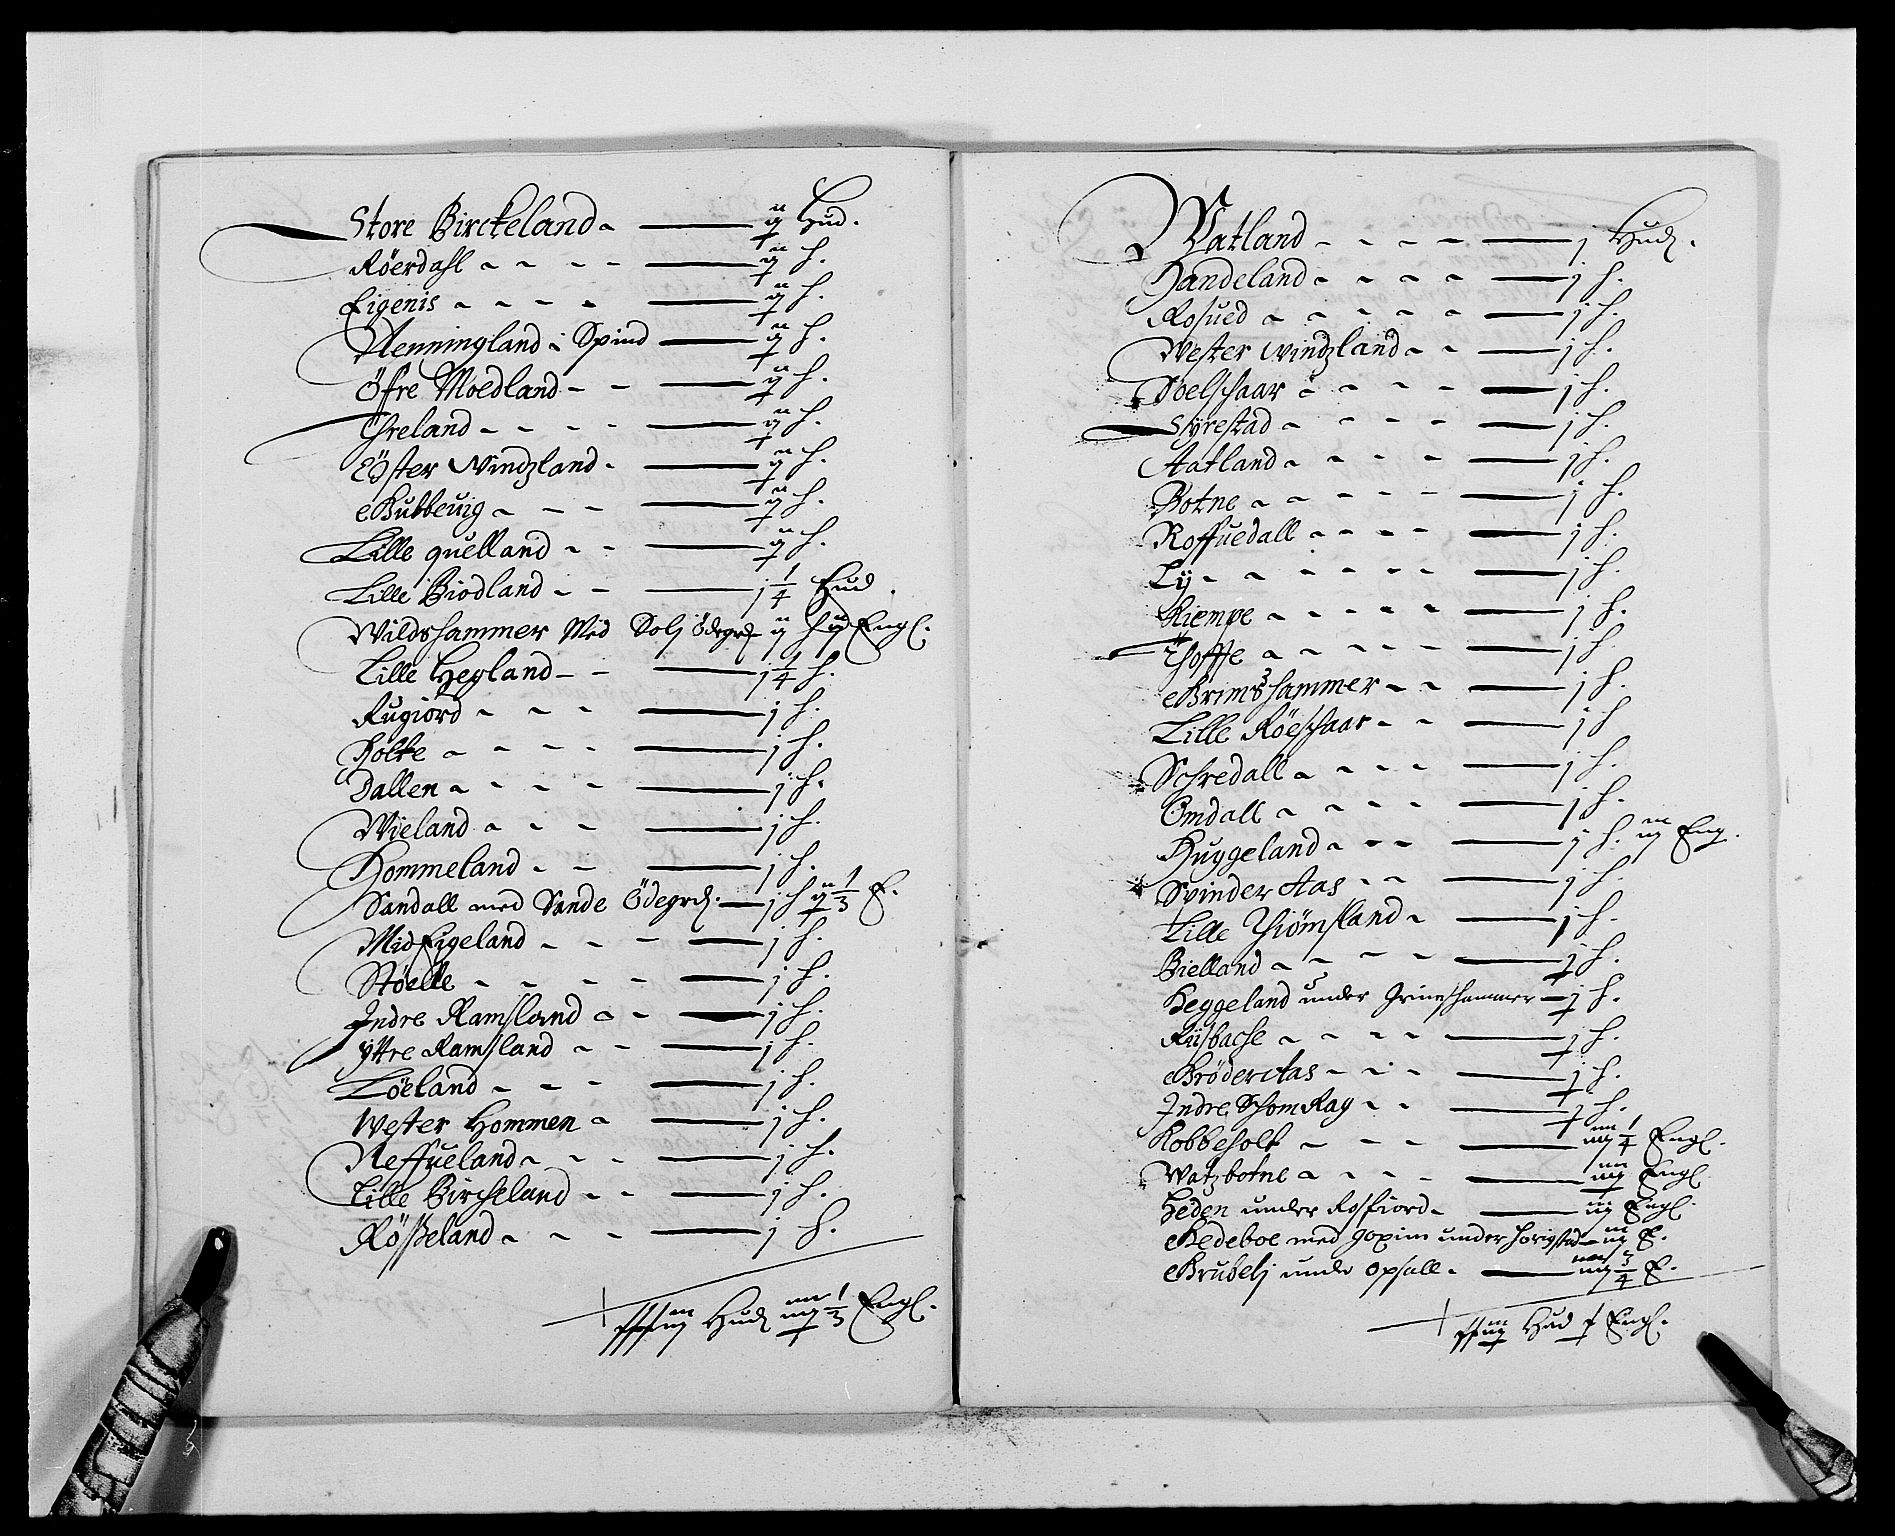 Store Birckeland - ij Hud.
Röerdahl - ij h.
Eigenis - ij h.
Henningland i Spind - ij h.
Öfre Moedland - ij h.
Threland - ij h.
Öster Vindzland - ij h.
Gubbeuig - ij h.
Lille quelland - ij h.
Lille Biodland - j 1/4 Hud.
Wildshammer Med Solj Ödegrd - ij h ij Engl.
Lille Hegland - j 1/4 h.
Rugiord - j h.
Holte - j h.
Dallen - j h.
Wieland - j h.
Hommeland - j h.
Sandall med Sande Ödegrd. - j h ij 1/3 E.
Mid Eigeland - j h.
Støelle - j h.
Indre Ramsland - j h.
Ÿttre Ramsland - j h.
Löeland - j h.
Wester Hommen - j h.
Neffueland - j h.
Lille Bircheland - j h.
Rößeland - j h.
Hud 1/3 Engl.
Watland - j Hud.
Handeland - j h.
Rosued - j h.
Wester Windzland - j h.
Soelschaar - j h.
Sÿrestad - j h.
Aatland - j h.
Botne - j h.
Roffuedall - j h.
Lÿ - j h.
Kiempe - j h.
Thoffte - j h.
Grimshammer - j h.
Lille Röeschaar - j h
Schredall - j h.
Omdall - j h.
Huggeland - j h. iij Eng.
Svinder Aas - j h.
Lille Thiömsland - j h.
Bielland - j h.
Heggeland under Grimshammer - j h.
Rÿsbache - j h.
Bröder Aas - j h.
Indre Schom Rag - j h.
Kobbeholt - iiij 1/4 Engl.
Watzbotne - iiij Engl
Heden under Rosfiord - iij Engl.
Gedeboe med under - iij E.
Grubelj under Opsall - iiij 3/4 E.
Hud Engl.